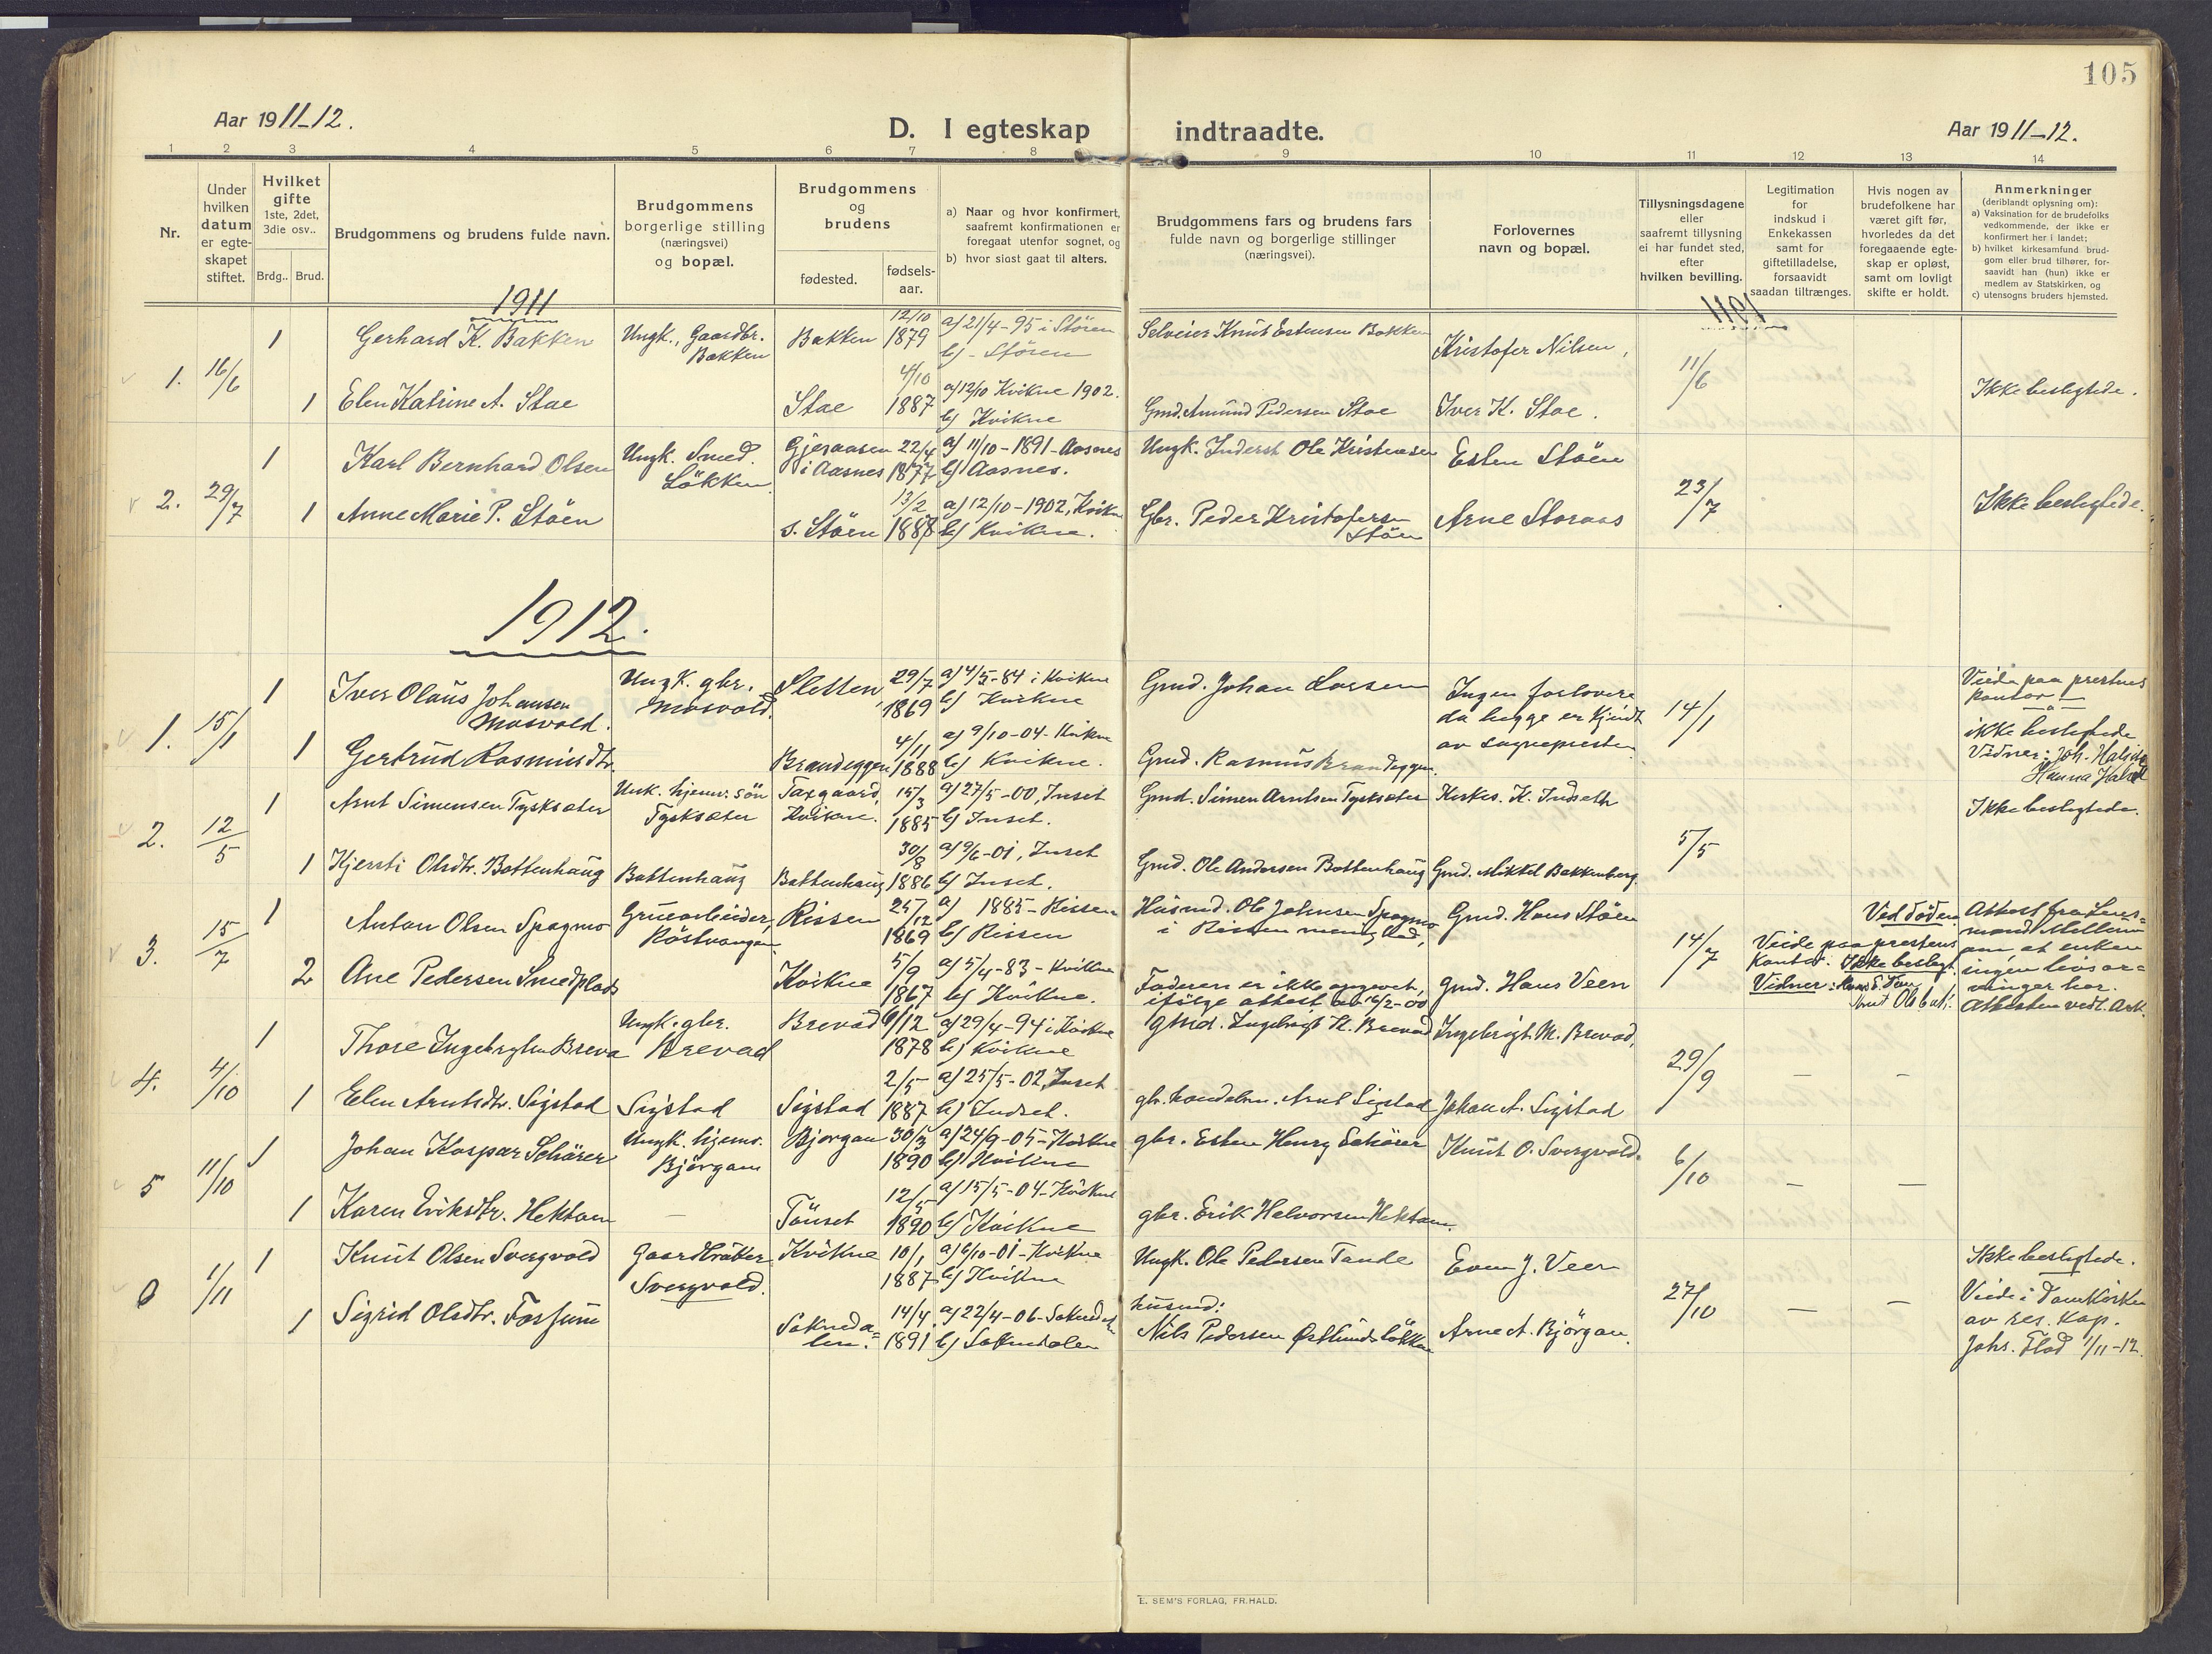 105
Aar 1911-12.
D. I egteskap indtraadte.
Aar 1911-12.
1 2 3 4 5 6 7 8 9 10 11 12 13 14
Nr.
Under
hvilken
datum
er egte-
skapet
stiftet.
Hvilket
gifte
1ste, 2det,
3die osv..
Brdg.. Brud.
Brudgommens og brudens fulde navn.
Brudgommens
borgerlige stilling
(næringsvei)
og bopæl.
Brudgommens
og
brudens
fødested.
fødsels-
aar.
a) Naar og hvor konfirmert,
saafremt konfirmationen er
foregaat utenfor sognet, og
b) hvor sidst gaat til alters.
Brudgommens fars og brudens fars
fulde navn og borgerlige stillinger
(næringsvei).
Forlovernes
navn og bopæl.
Tillysningsdagene
eller
saafremt tillysning
ei har fundet sted,
efter
hvilken bevilling.
Legitimation
for
indskud i
Enkekassen
samt for
giftetilladelse,
forsaavidt
saadan tiltrænges.
Hvis nogen av
brudefolkene har
været gift før,
hvorledes da det
foregaaende egte-
skap er opløst,
samt om lovligt
skifte er holdt.
Anmerkninger
(deriblandt oplysning om):
a) Vaksination for de brudefolks
vedkommende, der ikke er
konfirmert her i landet;
b) hvilket kirkesamfund brud-
gom eller brud tilhører, for-
saavidt han (hun) ikke er
medlem av Statskirken, og
c) utensogns bruders hjemsted.
1911
1. 16/6
1 Gerhard K. Bakken
Ungk., Gaardbr.
Bakken
Bakken
12/10
1879
a) 21/4-95 i Stören
b) - Stören
Selveier Knut Estensen Bakken
Kristofer Nilsen,
11/6
1 Elen Katrine A. Stae
Stae
4/10
1887
a) 12/10 Kvikne 1902.
b) Kvikne
Gmd. Amund Pedersen Stae
Iver K. Stae.
Ikke beslegtede.
2. 29/7
1 Karl Bernhard Olsen
Ungk. Smed.
Løkken
Gjesaasen
i Aasnes
22/4
1877
a) 11/10-1891-Aasnes
b) Aasnes.
Ungk. Inderst Ole Kristensen
Esten Stöen
23/7
1 Anne Marie P. Stöen
s. Stöen
13/2
1888
a) 12/10-1902, Kvikne
b) Kvikne.
Gbr. Peder Kristofersen
Stöen
Arne Storaas
Ikke beslegtede.
1912.
1. 15/1
1 Iver Olaus Johansen
Mosvold.
Ungk. gbr.
Mosvold.
Sletten,
29/7
1869
a) 4/5-84 i Kvikne
b) Kvikne
Gmd. Johan Larsen
Ingen forlovere
da begge er kjendt
av sognepresten
14/1
Viede paa prestens
kontor
ikke beslegtede
Vidner: Joh.
Hanna
1 Gertrud Rasmusdtr.
Brandeggen
4/11
1888
a) 9/10-04-Kvikne
b) Kvikne.
Gmd. Rasmus Brandeggen.
2. 12/5
1 Arnt Simensen Tysksæter
Unk. hjemv. sön
Tysksæter
Taxgaard,
Kvikne.
15/3
1885
a) 27/5-00, Inset
b) Inset.
Gmd. Simen Arntsen Tysksæter
Kirkes. K. Indseth
5/5
Ikke beslegtede.
1 Kjersti Olsdtr. Bottenhaug
Bottenhaug
Bottenhaug
30/8
1886
a) 9/6-01, Inset
b) Inset.
Gmd. Ole Andersen Bottenhaug
Gmd. Mikkel Bakkenberg.
3. 15/7
1 Anton Olsen Spagmo
Gruearbeider,
Röstvangen
Rissen
25/12
1869
a) 1885-Rissen
b) Rissen
Husmd. Ole Johnsen Spagmo
i Rissen menighed,
Gmd. Hans Stöen
14/7
Viede paa prestens
Kontor. Ikke beslegt.
Vidner:
Ved döden
Attest fra Lens-
mand
om at enken
ingen livsar-
vinger har.
Attesten vedl. Ark.
2 Ane Pedersen Smedplads
Kvikne
5/9
1867
a) 5/4-83-Kvikne
b) Kvikne.
Faderen er ikke opgivet,
ifölge attest av 16/2-00
Gmd. Hans Veen
4. 4/10
1 Thore Ingebrigtsen Breva
Ungk. gbr.
Brevad
Brevad
9/12
1878
a) 29/4-94 i Kvikne
b) Kvikne
Gmd. Ingebrigt H. Brevad
Ingebrigt M. Brevad,
29/9 – –
1 Elen Arntsdtr. Sigstad
Sigstad
Sigstad
2/5
1887
a) 25/5-02, Inset
b) Indset.
gbr. handelsm. Arnt Sigstad
Johan A. Sigstad
5 11/10
1 Johan Kaspar Schärer
Ungk. hjemv.
Björgan
Bjorgan
30/3
1890
a) 24/9-05-Kvikne
b) Kvikne
gbr. Esten Henry Schärer
Knut O. Svergvold.
6/10 – –
1 Karen Eriksdtr. Hektoen
–
Tönset
12/5
1890
a) 15/5-04-Kvikne
b) Kvikne
gbr. Erik Halvorsen Hektoen.
6 1/11
1 Knut Olsen Svergvold
Gaardbruker
Svergvold.
Kvikne
10/1
1887
a) 6/10-01-Kvikne
b) Kvikne
Ungk. Ole Pedersen Tande
Even J. Veen
27/10 – –
Ikke beslegtede.
Viede i Domkirken
av res. kap.
Johs. Flod 1/11-12.
1 Sigrid Olsdtr. Fossum
Sokneda-
len.
14/4
1891
a) 22/4-06-Soknedalen
b) Soknedalen
husmd.
Nils Pedersen Østlundsløkken
Arne A. Björgan.
E. SEM'S FORLAG, FR.HALD.